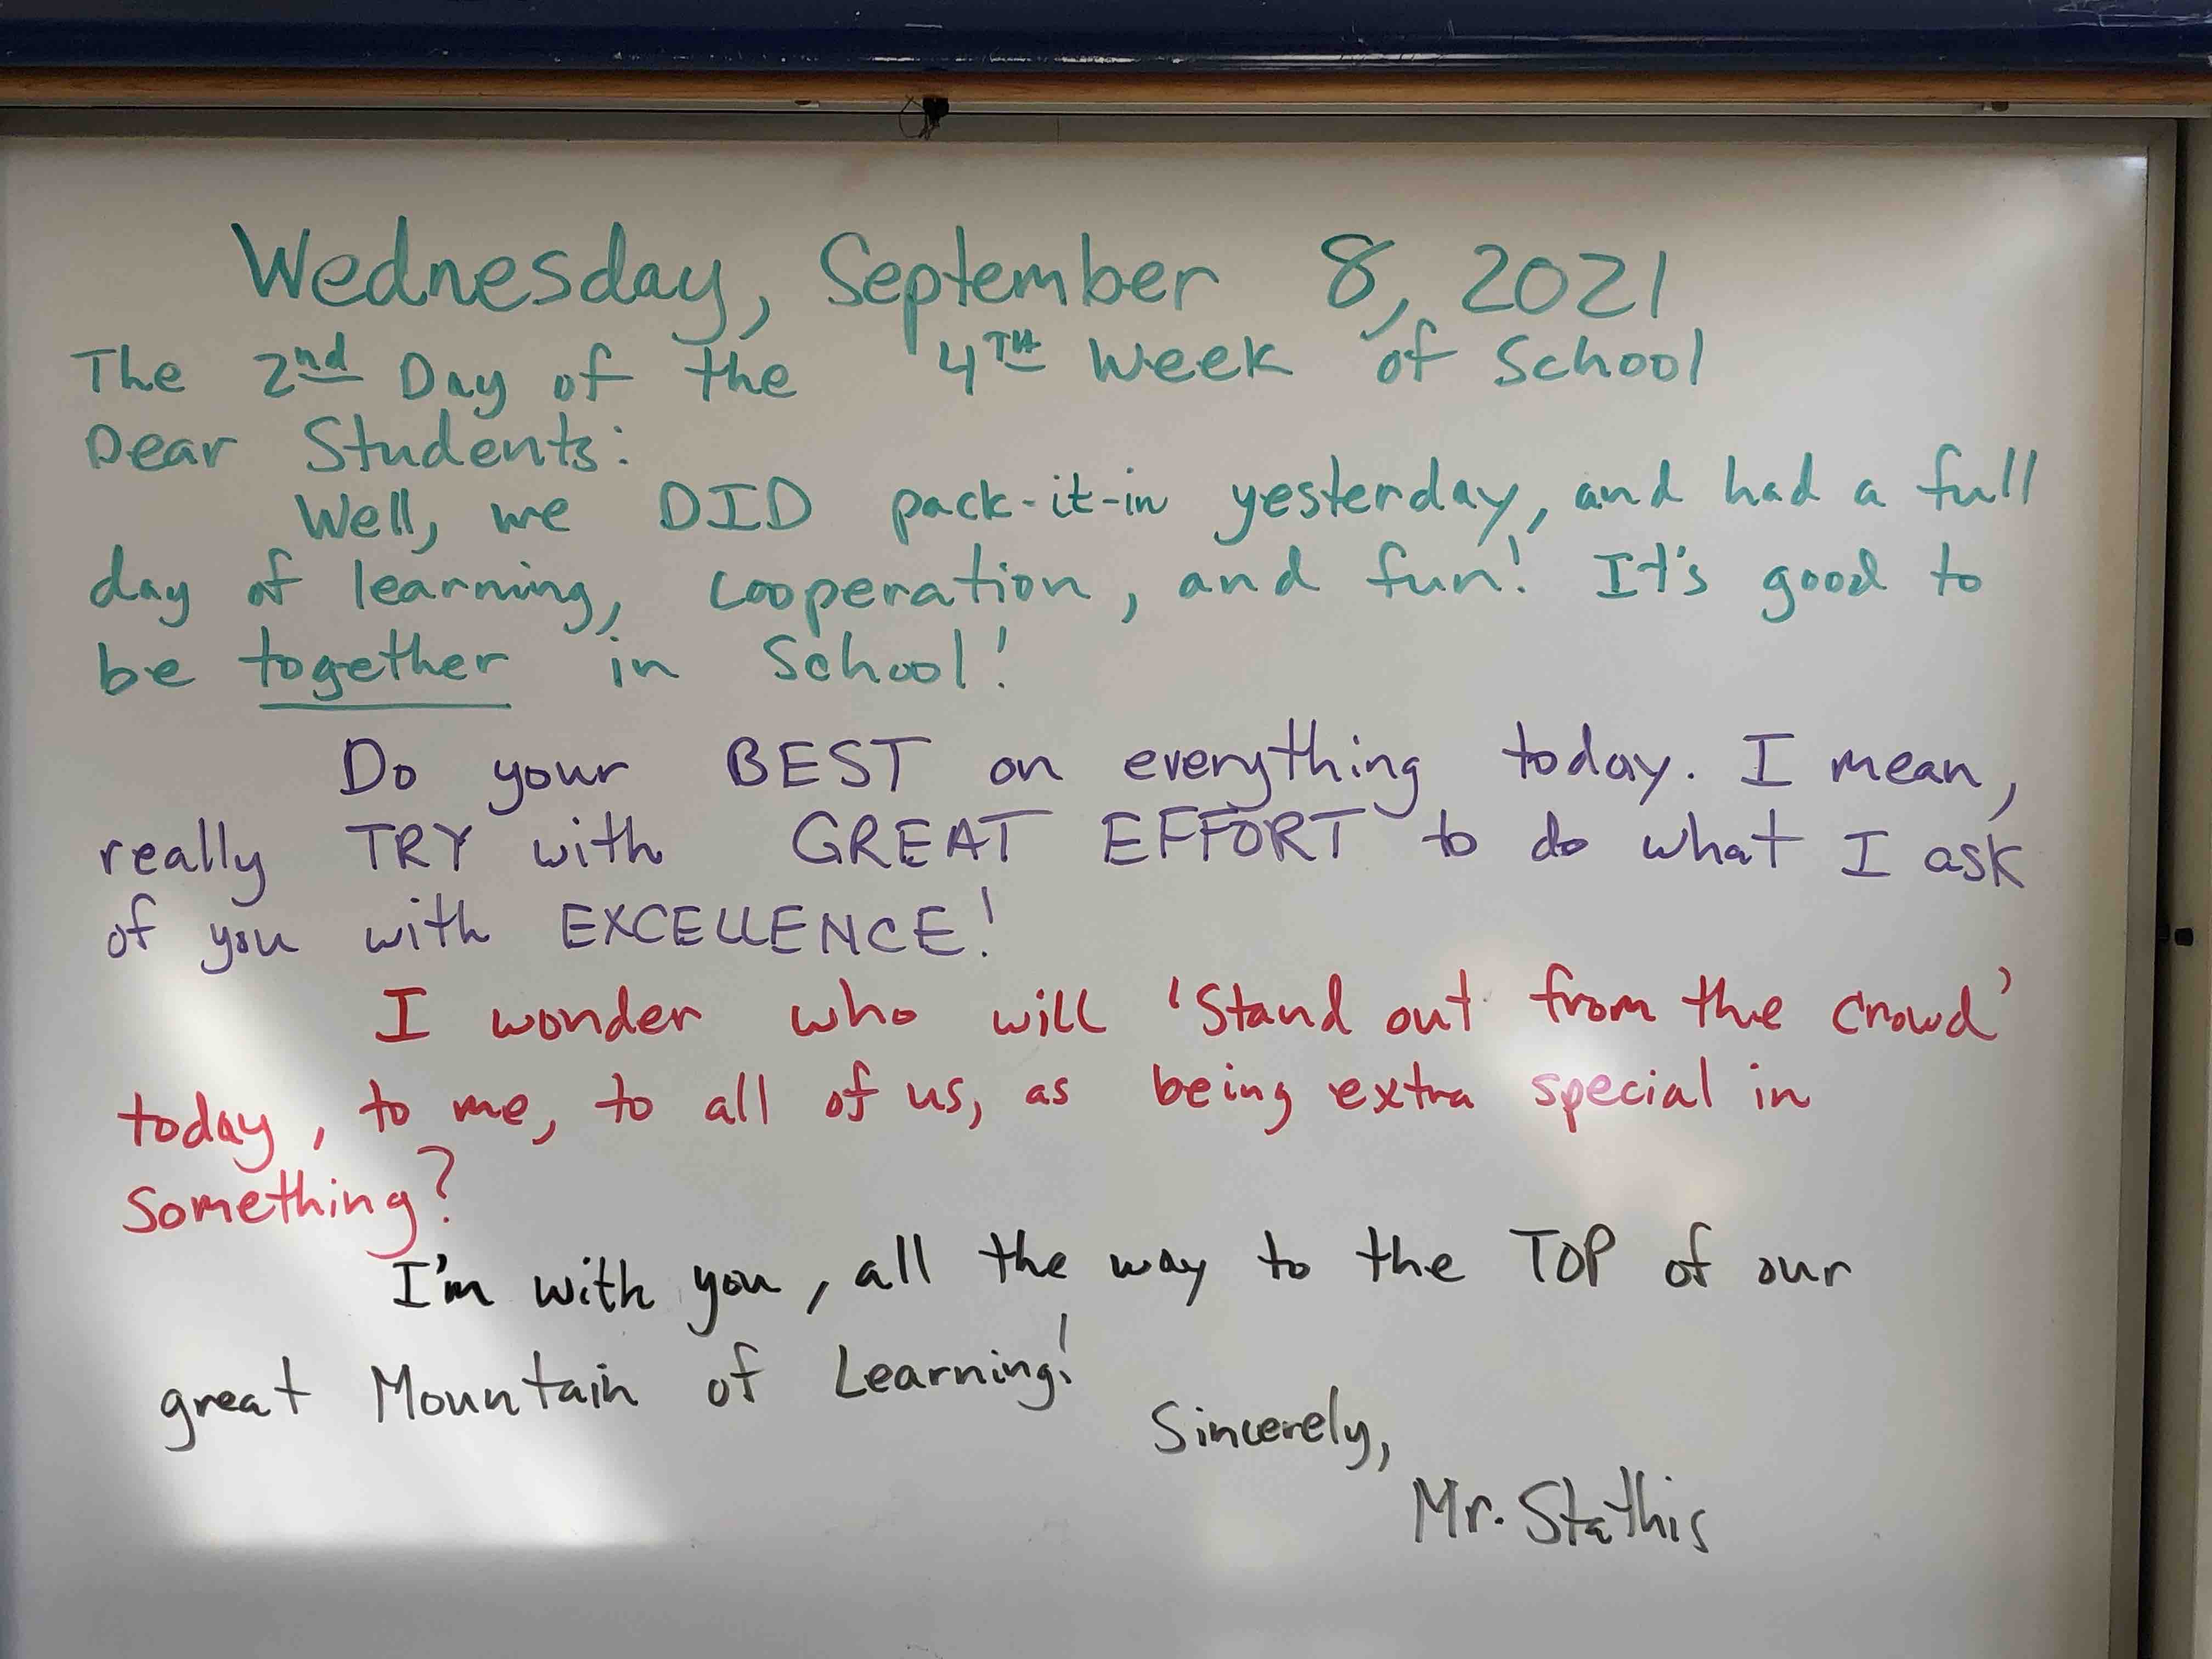 Wednesday, September 8, 2021
The 2nd Day of the 4TH Week of School
Dear Students:
Well, we DID pack-it-in yesterday, and had a full
day of learning, cooperation, and fun! It's good to
be together in School!
Do your BEST on everything today. I mean,
really TRY with GREAT EFFORT to do what I ask
of you with EXCELLENCE!
I wonder who will 'Stand out from the crowd'
today, to me, to all of us, as being extra special in
Something?
I'm with you, all the way to the TOP of our
great Mountain of Learning!
Sincerely,
Mr. Stathis